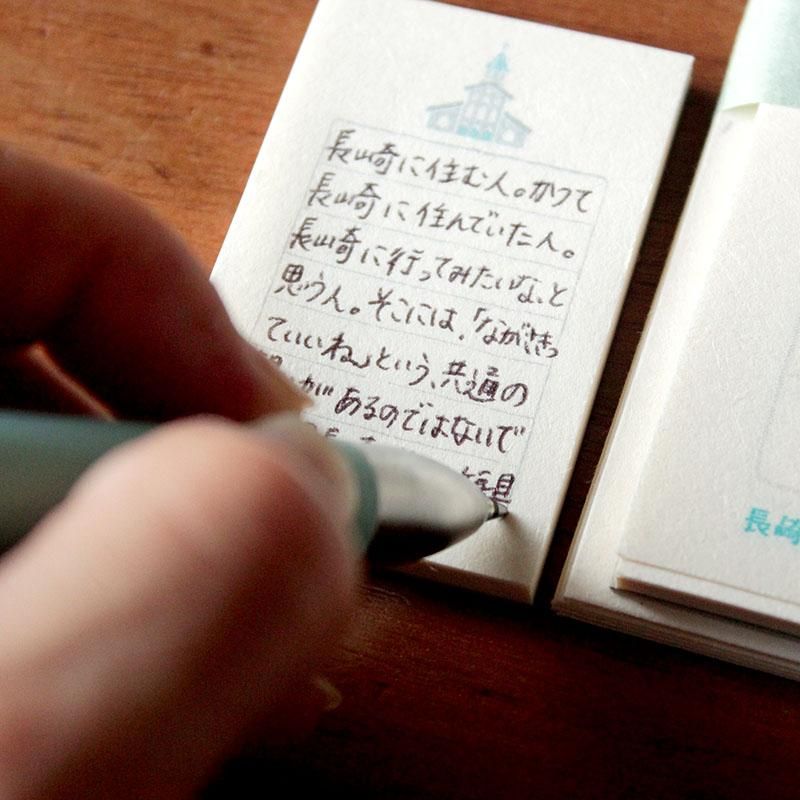 長崎に住む人。かつて
長崎に住んでいた人。
長崎に行ってみたいな、と
思う人。そこには、「ながさきっ
ていいね」という、共通の
があるのではないで
長崎